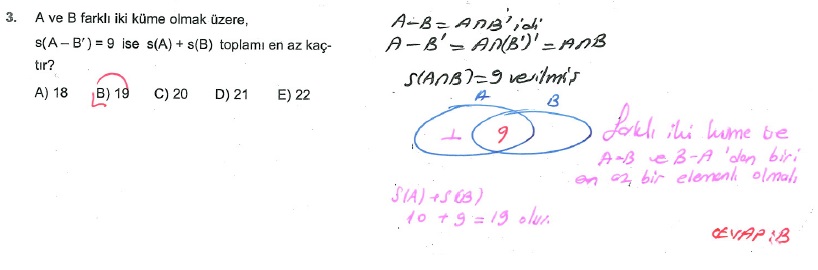 3. A ve B farklı iki küme olmak üzere,
s(A – B′) = 9 ise s(A) + s(B) toplamı en az kaç-
tır?
A) 18 B) 19 C) 20 D) 21 E) 22
A-B = A∩B′ idi
A - B′ = A∩(B′)′ = A∩B
s(A∩B) = 9 verilmiş
A B
1 9
farklı iki küme ise
A-B ve B-A 'dan biri
en az bir elemanlı olmalı
S(A) + S(B)
10 + 9 = 19 olur.
CEVAP: B